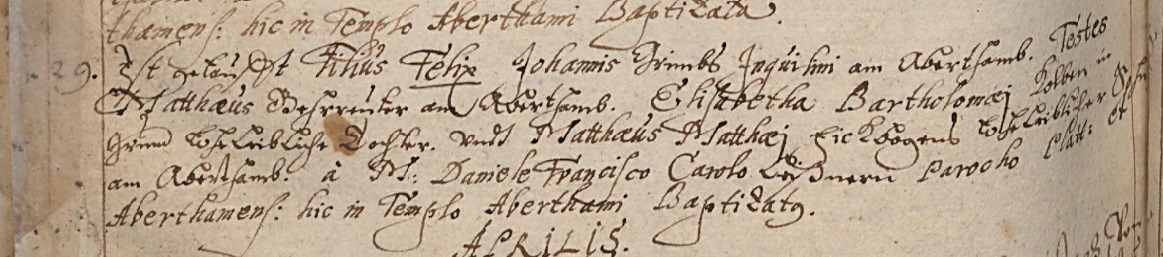 thamens: hic in Templo Aberthami Baptizata.
29. Ist getaufft Filius Felix Johannis Grimbs Inquilini am Aberthamb. Testes
Matthæus Wehrreuter am Aberthamb. Elisabetha Bartholomæj Kolben im
Grund Eheleibliche Tochter. undt Matthæus Matthæj Eheleiblicher Sohn
am Aberthamb. à M: Daniele Francisco Carolo Parocho Platt: et
Aberthamens: hic in Templo Aberthami Baptizatq.
APRILIS.